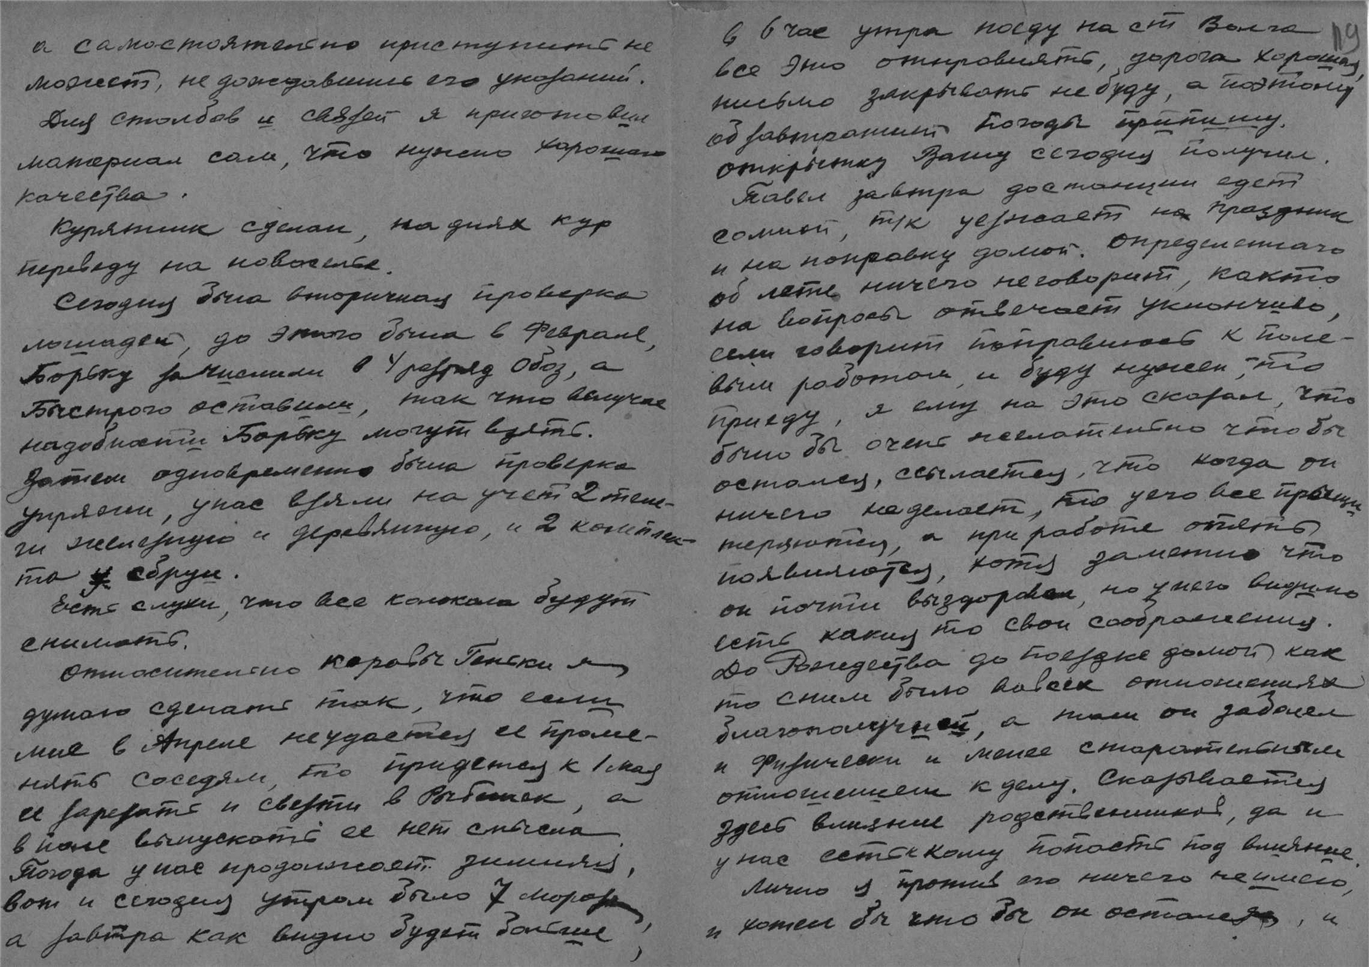 а самостоятельно приступить не
может, не дождавшись его указаний.
Для столбов и связей я приготовил
материал сам, что нужно хорошаго
качества.
Курятник сделан, на днях кур
переведу на новоселье.
Сегодня была вторичная проверка
лошадей, до этого была в Феврале,
Борьку зачислили в 4 разряд Обоз, а
Быстрого оставили, так что вслучае
надобности Борьку могут взять.
Затем одновременно была проверка
упряжи, унас взяли на учет 2 теле-
ги железную и деревянную, и 2 комплек-
та сбруи.
Есть слухи, что все колокола будут
снимать.
Относительно коровы Геньки я
думаю сделать так, что если
мне в Апреле неудастся ее проме-
нять соседям, то придется к 1 мая
ее зарезать и свезти в Рыбинск, а
в поле выпускать ее нет смысла.
Погода у нас продолжает зимняя,
вот и сегодня утром было 7 мороза,
а завтра как видно будет больше,
119
в 6 час утра поеду на ст Волга
все это отправлять, дорога хорошая,
письмо закрывать небуду, а поэтому
об завтрашней погоды припишу.
открытку Вашу сегодня получил.
Павел завтра достанции едет
сомной, т/к уезжает на праздник
и на поправку домой. Определеннаго
об лете ничего неговорит, както
на вопросы отвечает уклончиво,
если говорит поправлюсь к поле-
вым работам и буду нужен, то
приеду, я ему на это сказал, что
было бы очень желательно чтобы
остался, ссылается, что когда он
ничего неделает, то унего все прыщи
теряются, а при работе опять
появляются, хотя заметно что
он почти выздоровел, но унего видимо
есть какия то свои соображения.
До Рождества до поездке домой как
то сним было вовсех отношениях
благополучней, а там он заболел
и Физически и менее старательным
отношением к делу. Сказывается
здесь влияние родственников, да и
у нас есть кому попасть под влияние.
Лично я против его ничего неимею,
и хотел бы что бы он остался, и